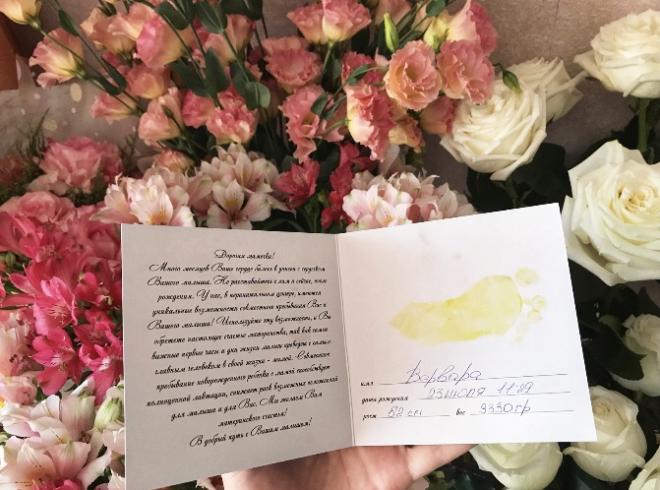 Дорогая мамочка!
Много месяцев Ваше сердце билось в унисон с сердцем
Вашего малыша. Не расставайтесь с ним и сейчас, после
рождения. У нас, в перинатальном центре, имеется
уникальная возможность совместного пребывания Вас и
Вашего малыша! Используйте эту возможность, и Вы
обретете настоящее счастье материнства, так как самые
важные первые часы и дни жизни малыш проведет с самым
главным человеком в своей жизни - мамой. Совместное
пребывание новорожденного ребенка с мамой способствует
полноценной лактации, снижает риск возможных осложнений
для малыша и для Вас. Мы желаем Вам
материнского счастья!
В добрый путь с Вашим малышом!
имя Варвара
дата рождения 23 июля 11:29
рост 52 см вес 3330 гр